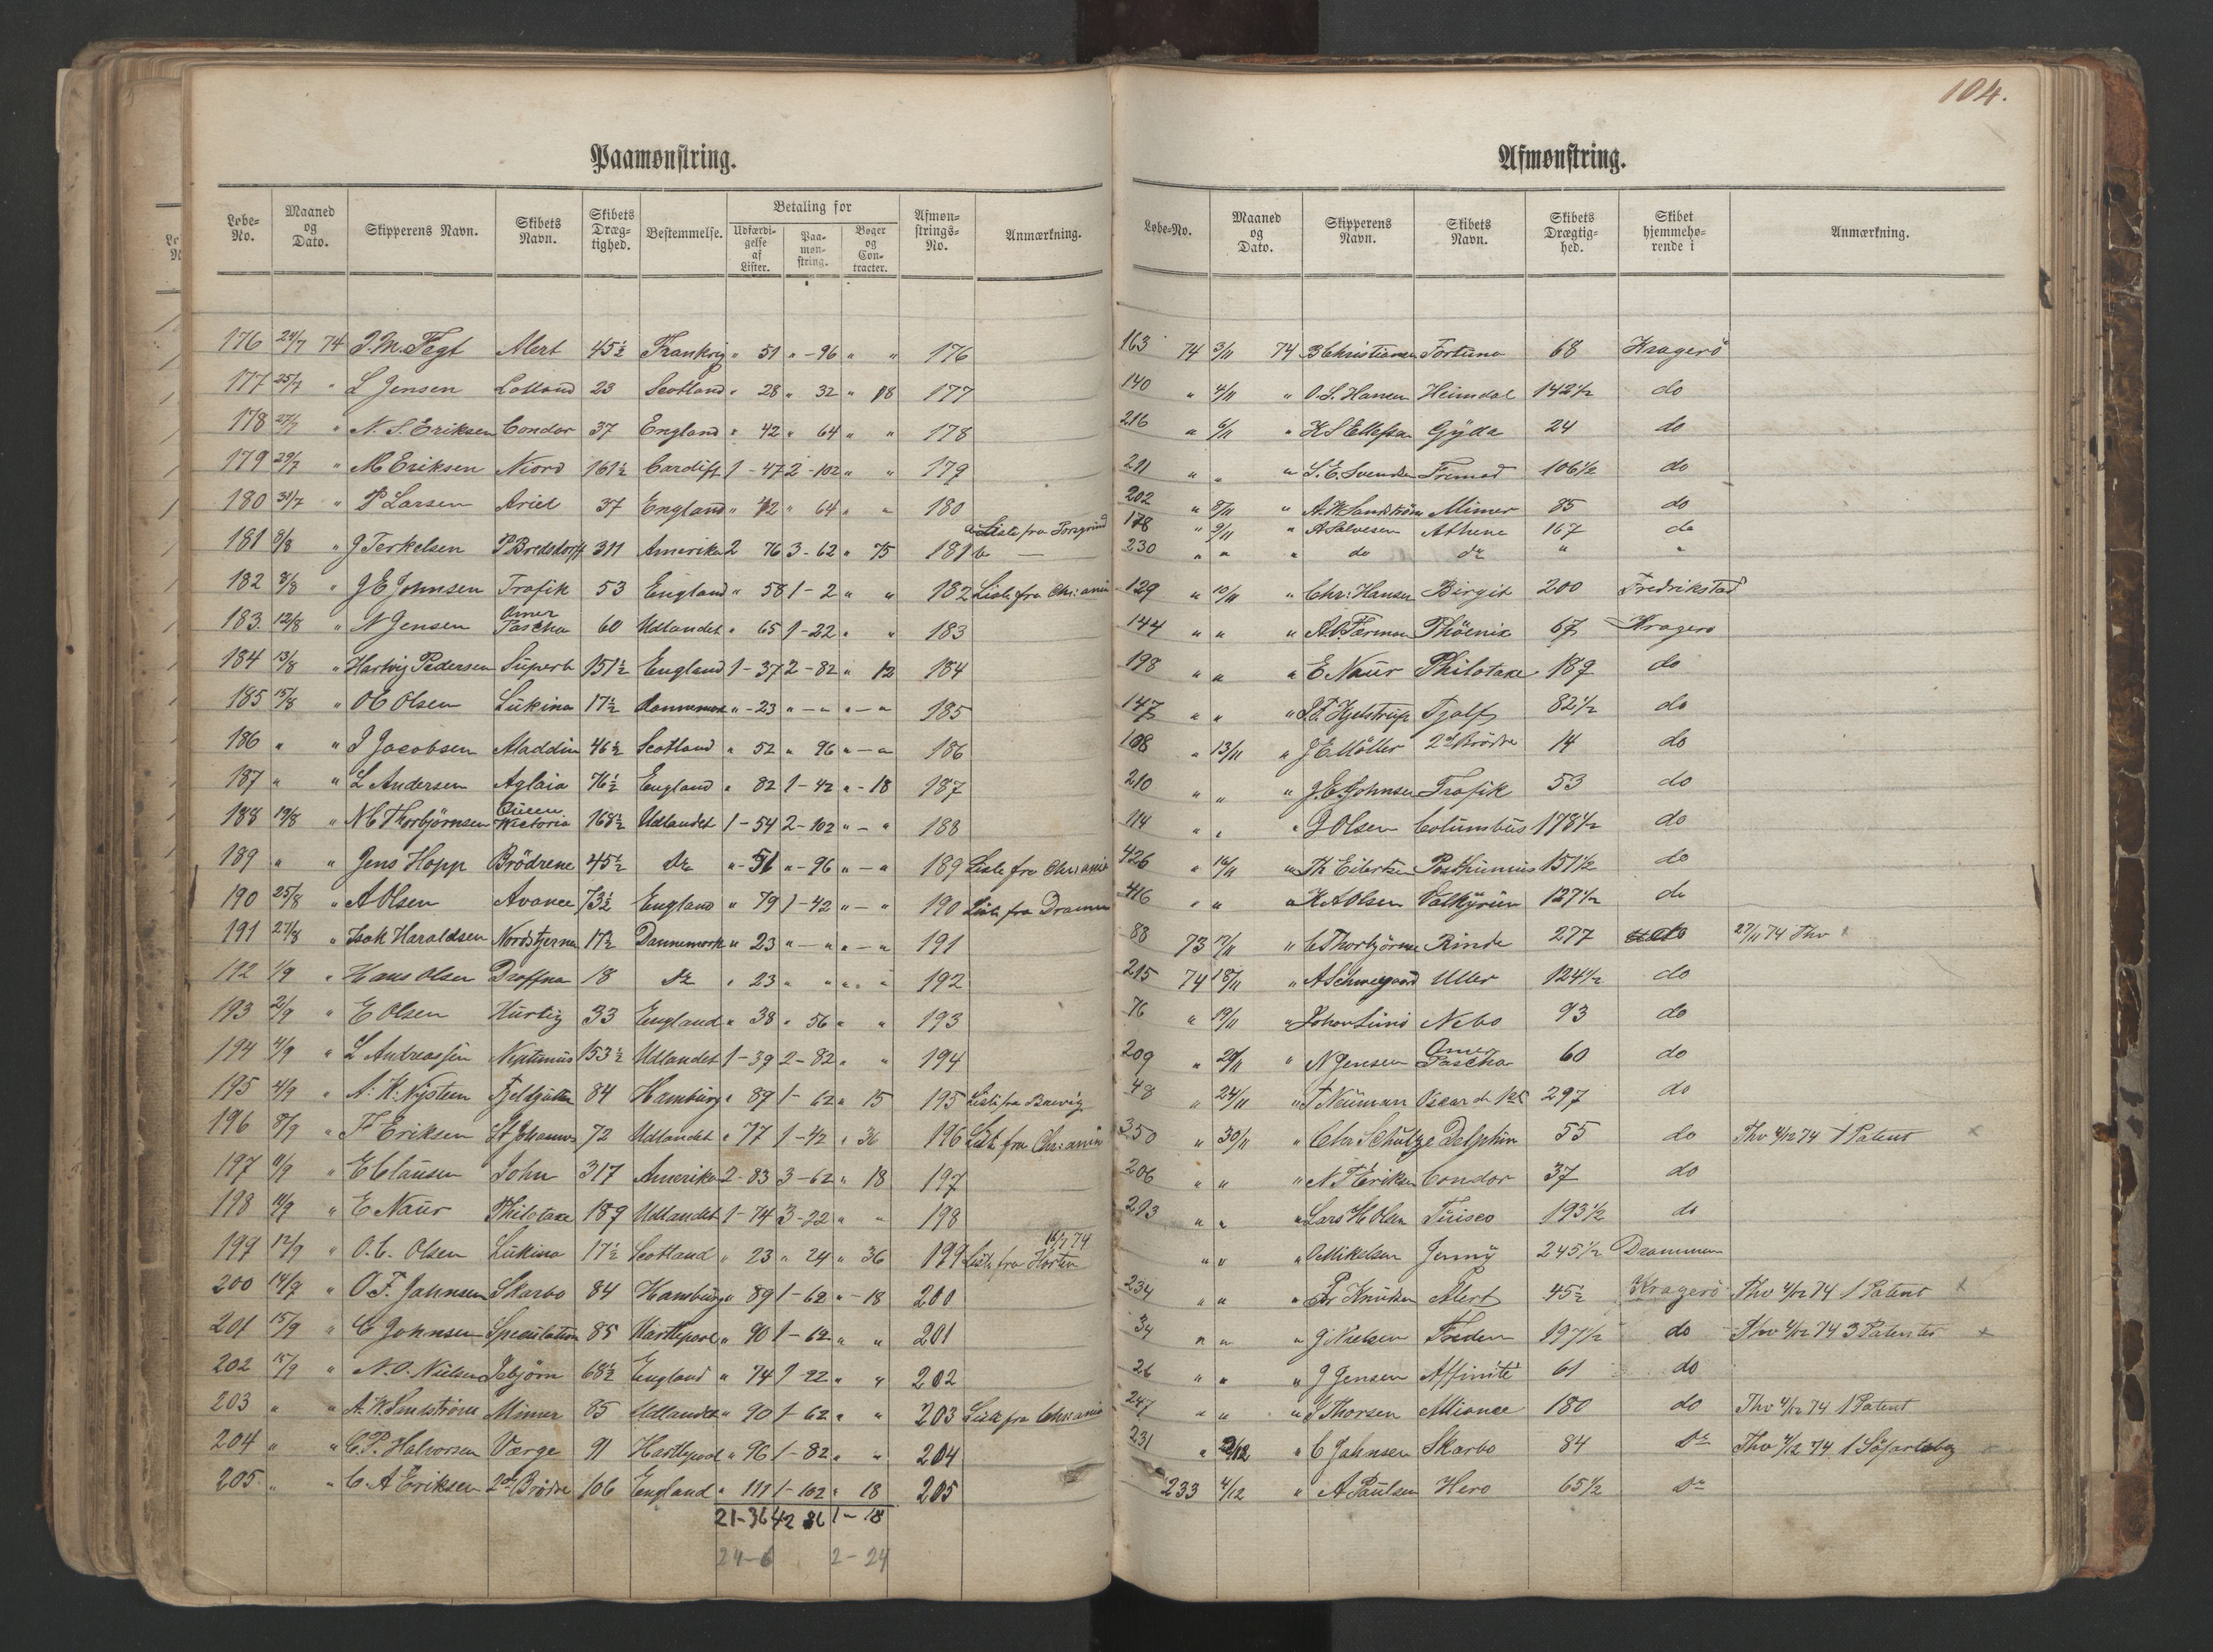 104.
Paamønstring.
Løbe-No. Maaned og Dato. Skipperens Navn. Skibets Navn. Skibets Dræg-tighed. Bestemmelse. Betaling for Udfærdi-gelse af Lister. Paa-møn-string. Bøger og Con-tracter. Afmøn-strings-No. Anmærkning.
176 24/7 74 Alert 45½ Frankrig " 51 " - 96 " " 176
177 25/7 " L Jensen Lolland 23 Scotland " 28 " 32 " 18 177
178 27/7 " N. S. Eriksen Condor 37 England " 42 " 64 " " 178
179 29/7 " M Eriksen Niord 161½ Cardiff 1 - 47 2 - 102 " " 179
180 31/7 " P Larsen Ariel 37 England " 42 " 64 " " 180
181 3/8 " J Terkelsen P Bredsdorff 311 Amerika 2 76 3 - 62 " 75 181 a Liste fra Porsgrund b —
182 8/8 " J E Johnsen Trafik 53 England " 58 1 - 2 " " 182 Liste fra Chr:ania
183. 12/8 " N Jensen Omer Pascha 60 Udlandet " 65 1 - 22 " " 183
184 13/8 " Hartvig Pedersen Superb 151½ England 1 - 37 2 - 82 " 12 184
185 15/8 " O C Olsen Lukina 17½ Dannemark " - 23 " - " " - " 185
186 " " J Jacobsen Aladdin 46½ Scotland " 52 " 96 " - " 186
187 " " L Andersen Aglaia 76½ England " 82 1 - 42 " - 18 187
188 19/8 " N C Thorbjørnsen Queen Victoria 168½ Udlandet 1 - 54 2 - 102 " - " 188
189 " " Jens Hopp Brödrene 45½ do " - 51 " - 96 " - " 189 Liste fra Chr:ania
190 25/8 " A Olsen Avance 73½ England " 79 1 - 42 " - " 190 Liste fra Drammen
191 27/8 " Isak Haraldsen Nordstjernen 17½ Dannemark " 23 " - " " - " 191
192 1/9 " Hans Olsen 18 do " 23 " " " " 192
193 2/9 " E Olsen Hurtig 33 England " 38 " 56 " " 193
194 4/9 " L Andreassen Neptunus 153½ Udlandet 1 - 39 2 - 82 " " 194
195 4/9 " A. K. Nysteen Fjeldgutten 84 Hamburg " 89 1 - 62 " 15 195 Liste fra Brevig
196 8/9 " F Eriksen St Johannes 72 Udlandet " 77 1 - 42 " 36 196 Liste fra Chr:ania
197 9/9 " E Clausen John 317 Amerika 2 - 83 3 - 62 " 18 197
198 11/9 " E Naur Philotaxe 189 Udlandet 1 - 74 3 - 22 " " 198
199 12/9 " O. C. Olsen Lukina 17½ Scotland " 23 " 24 " 36 199 Liste fra Horten 16/7 74
200 14/9 " O. F. Jahnsen Skarbo 84 Hamburg " 89 1 - 62 " - 18 200
201 15/9 " C Johnsen Speculation 85 Hartlepool " 90 1 - 62 " " 201
202 15/9 " N. O. Nielsen Isbjørn 68½ England " 74 1 - 22 " " 202
203 " " A. W. Sandström Mimer 85 Udlandet " 90 1 - 62 " " 203 Liste fra Chr:ania
204 " " C. P. Halvorsen Værge 91 Hartlepool " 96 1 - 82 " " 204
205. " " C. A Eriksen 2de Brödre 106 England " 111 1 - 102 " 18 205
21 - 36 42 86 1 - 18
24 - 6 2 - 24
Afmønstring.
Løbe-No. Maaned og Dato. Skipperens Navn. Skibets Navn. Skibets Drægtig-hed. Skibet hjemmehø-rende i Anmærkning.
163 74 3/11 74 B Christiansen Fortuna 68 Kragerö
140 " 4/11 " O. S. Hansen Heimdal 142½ do
216 " 6/11 " K S Ellefsen Gyda 24 do
211 " " " S. E. Svendsen Fremad 106½ do
202 " 8/11 " A. W. Sandström Mimer 85 do
178 " 9/11 " A Salvesen Athene 167 do
230 " " " do do " "
129 " 10/11 " Chr: Hansen Birgit 200 Fredrikstad
144 " " " Phöenix 67 Kragerö
198 " " " E Naur Philotaxe 189 do
147 " " " Hjelstrup Tjalf 82½ do
108 " 13/11 " J E Möller 2de Brödre 14 do
210 " " " J. E. Johnsen Trafik 53 do
114 " " " J Olsen Columbus 178½ do
426 " 16/11 " Th Eilertsen Posthumus 151½ do
416 " " " K A Olsen Valkyrien 127½ do
88 73 17/11 " C Thorbjörnsen Rinde 277 do 27/11 74 Thv
215 74 18/11 " A Schweigaard Uller 124½ do
76 " 19/11 " Johan Nebo 93 do
209 " 20/11 " N Jensen Omer Pascha 60 do
48 " 24/11 " T Neuman Oscar den 1ste 297 do
350 " 30/11 " Chr Schultze Delphin 55 do Thv 4/12 74 1 Patent x
206 " " " N S Eriksen Condor 37 do
213 " " " Lars H Olsen Tuisco 193½ do
" " " O Mikelsen Jenny 245½ Drammen
234 " " " Pr Knudsen Alert 45½ Kragerö Thv 4/12 74 1 Patent x
34 " " " J Nielsen Freden 197½ do Thv 4/12 74 3 Patenter x
26 " " " J Jensen Affinité 61 do
247 " " " J Thorsen Alliance 180 do Thv 4/12 74 1 Patent
231 " 2/12 " C Jahnsen Skarbo 84 do Thv 4/12 74 1 Söfartsbog
233 4/12 " A Paulsen Hero 65½ do